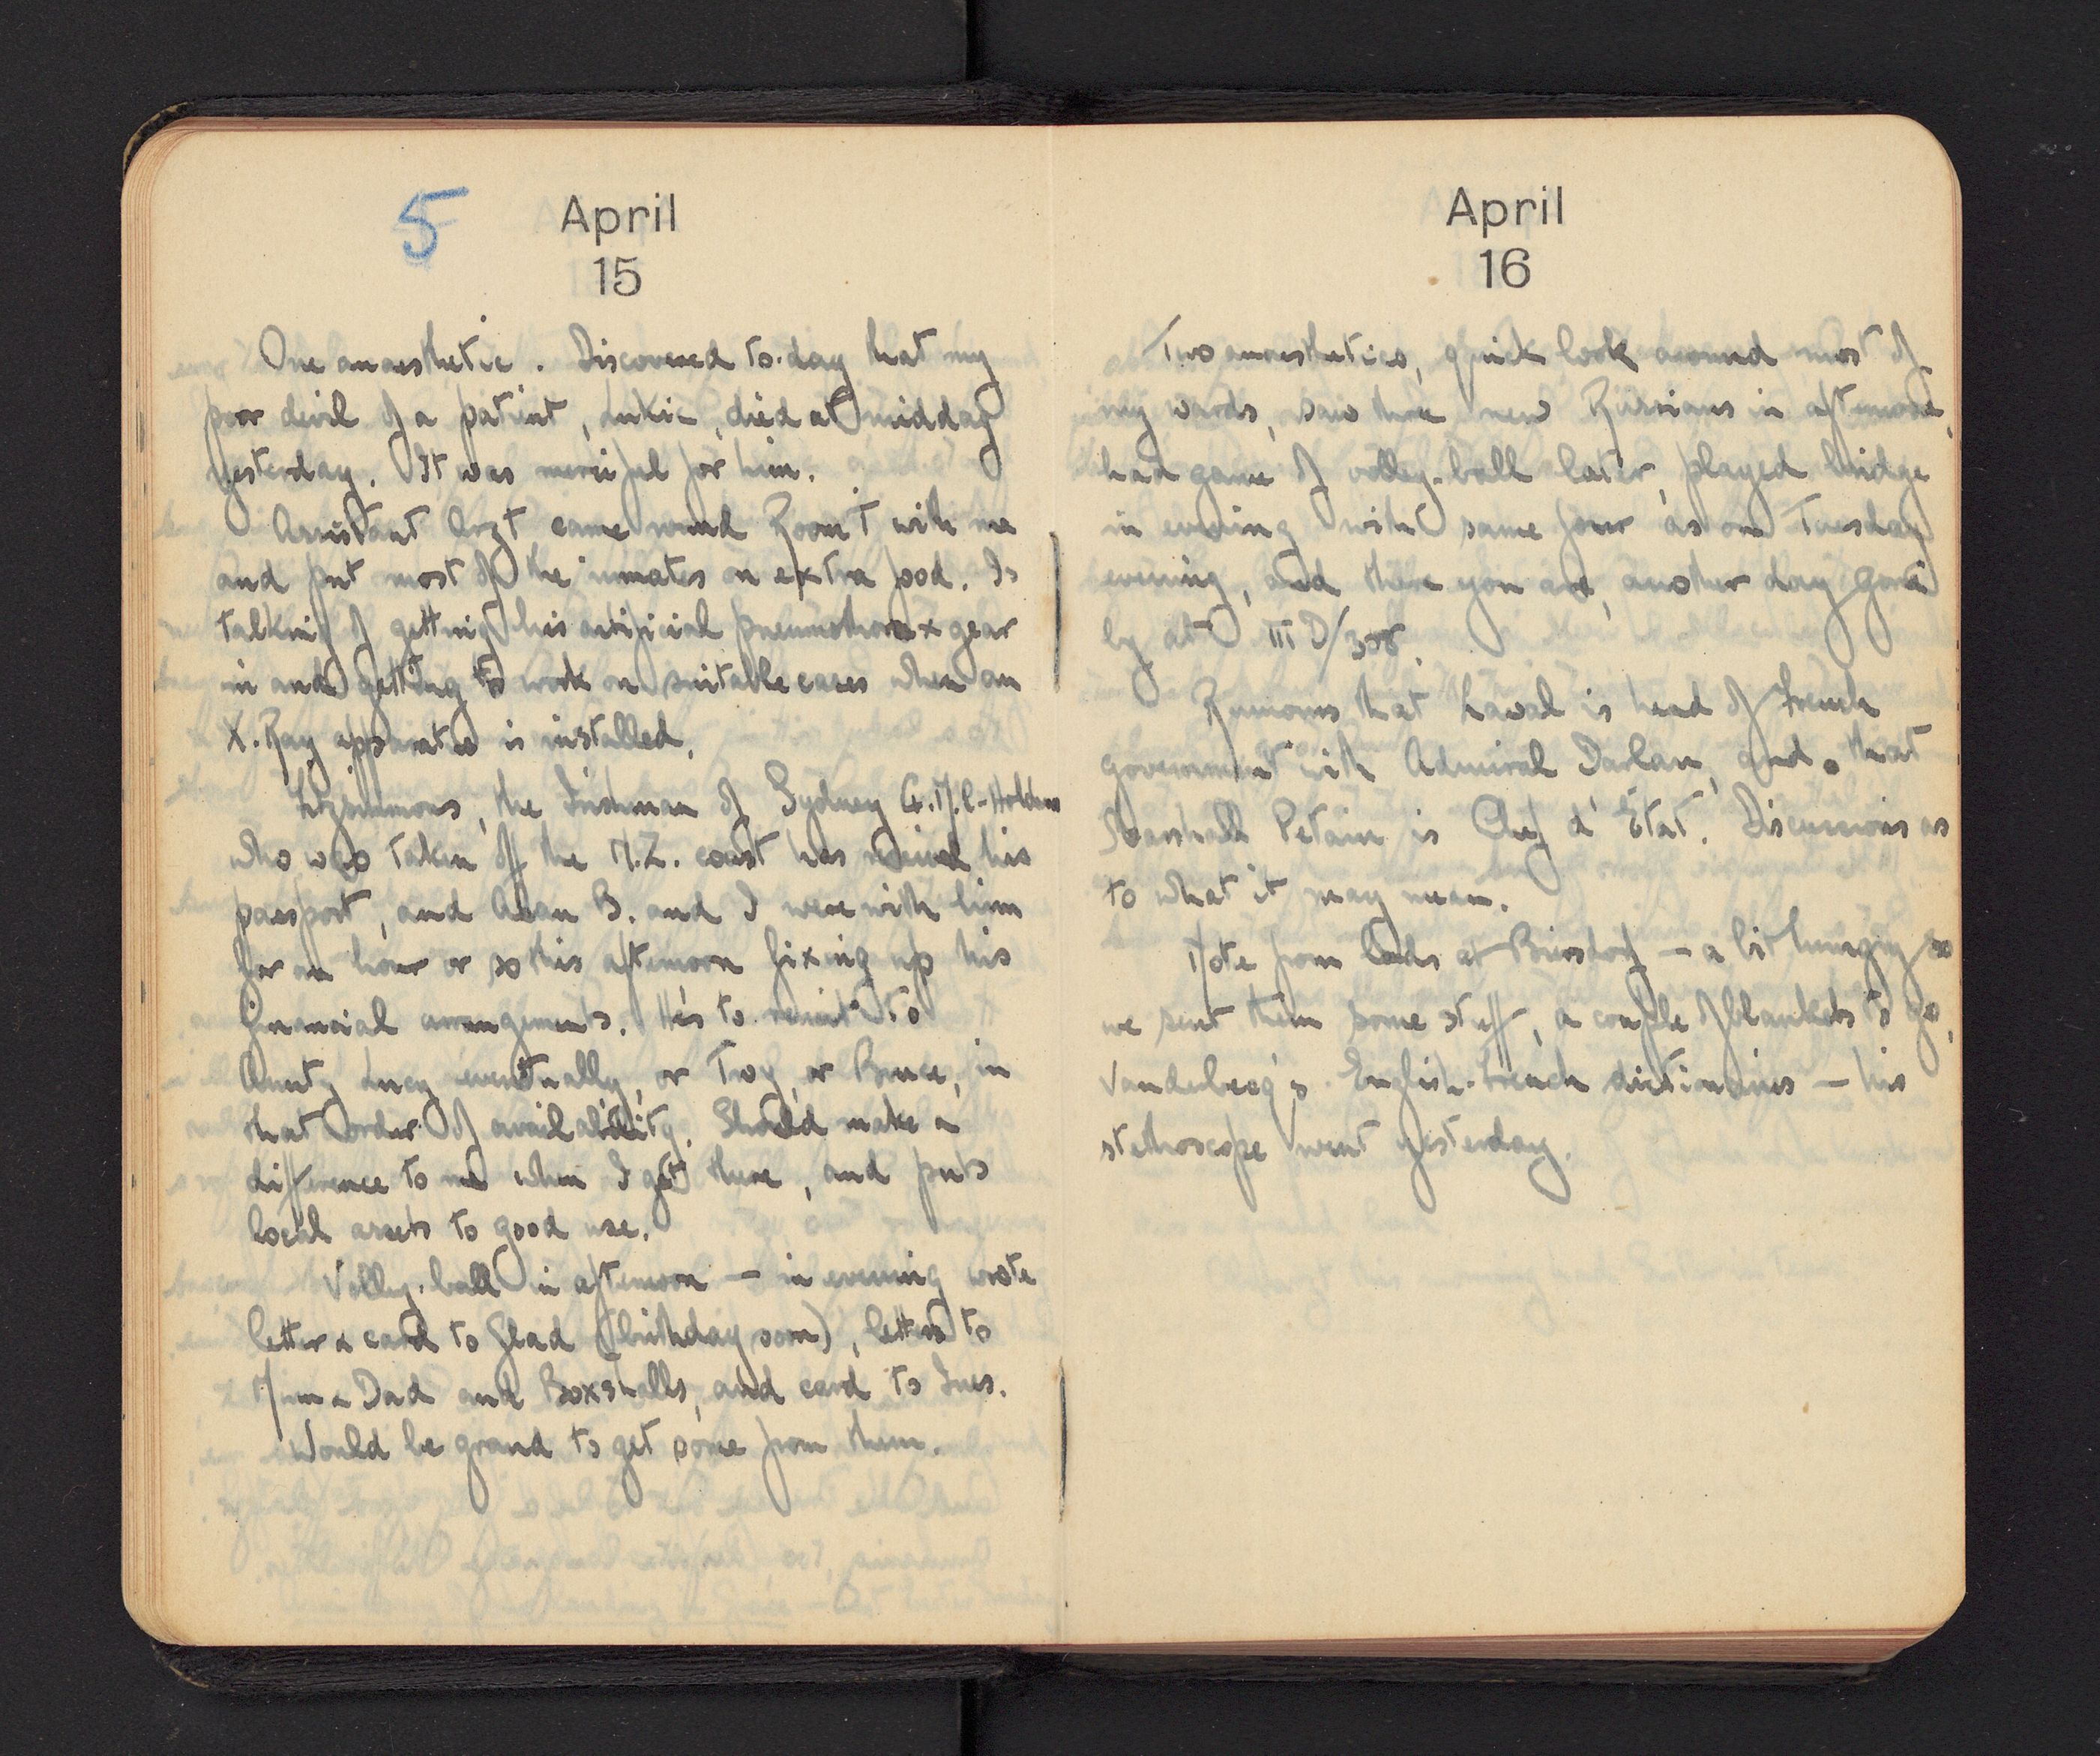 5
April
15
One anaesthetic. Discovered to-day that my
poor devil of a patient, Lukic, died at midday
yesterday. It was merciful for him.
Assistant Arzt came round Room T with me
and put most of the inmates on extra food. Is
talking of getting his artificial pneumothorax gear
in and getting to work on suitable cases when an
X-Ray apparatus is installed.
Fitzsimmons, the Irishman of Sydney G.M.C-Holdens
who was taken off the N.Z. coast has received his
passport, and Alan B. and I were with him
for an hour or so this afternoon fixing up his
financial arrangements. He's to remit to
Aunty Lucy eventually, or Troy, or Bruce, in
that order of availability. Should make a
difference to me when I get there, and puts
local assets to good use.
Volley-ball in afternoon – in evening wrote
letter & card to Glad (birthday soon), letters to
Mum & Dad and Boxshalls, and card to Ines.
Would be grand to get some from them.
April
16
Two anaesthetics, quick look around most of
my wards, saw three new Russians in afternoon,
had game of volley-ball later, played bridge
in evening with same four as on Tuesday
evening, and there you are, another day gone
by at III D/358.
Rumours that Laval is head of French
government with Admiral Darlan, and that
Marshall Petain is Chef d'Etat. Discussions as
to what it may mean.
Note from lads at – a bit hungry so
we sent them some stuff, a couple of blankets to go,
Vanderberg's English-French dictionaries – his
stethoscope went yesterday.